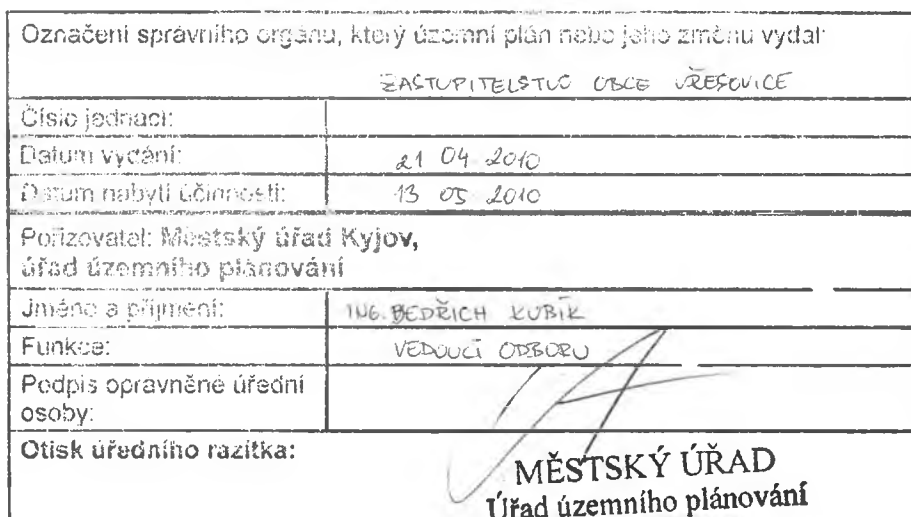 Označení správního orgánu, který územní plán nebo jeho změnu vydal:
ZASTUPITELSTVO OBCE VŘESOVICE
Číslo jednací:
Datum vydání: 21 04 2010
Datum nabytí účinnosti: 13 05 2010
Pořizovatel: Městský úřad Kyjov,
úřad územního plánování
Jméno a příjmení: ING. BEDŘICH KUBÍK
Funkce: VEDOUCÍ ODBORU
Podpis oprávněné úřední
osoby:
Otisk úředního razítka:
MĚSTSKÝ ÚŘAD
Úřad územního plánování